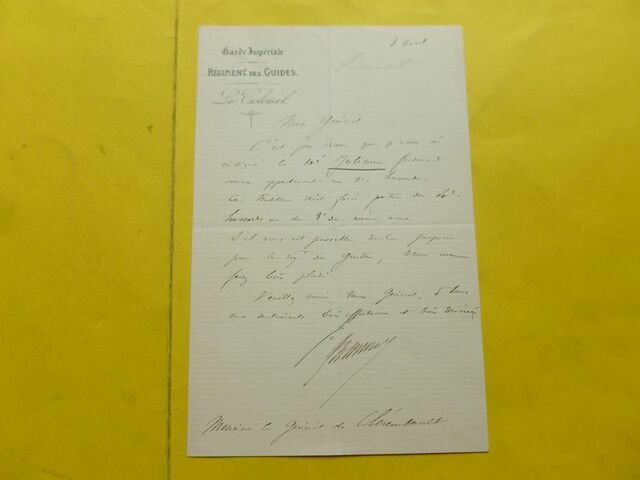 Garde Impériale
RÉGIMENT DES GUIDES.
Le Colonel
8 Avril
Mon Général
C'est par erreur que je vous ai
indiqué le Mal Julienne
comme appartenant au 2e hussards.
Ce militaire doit faire partie du 4e
hussards ou du 8e de même arme.
S'il vous est possible de le proposer
pour le régt des Guides, vous me
ferez bien plaisir.
Veuillez croire, mon Général, à tous
mes sentiments bien affectueux et bien dévoués
Monsieur le Général de Clérembault.